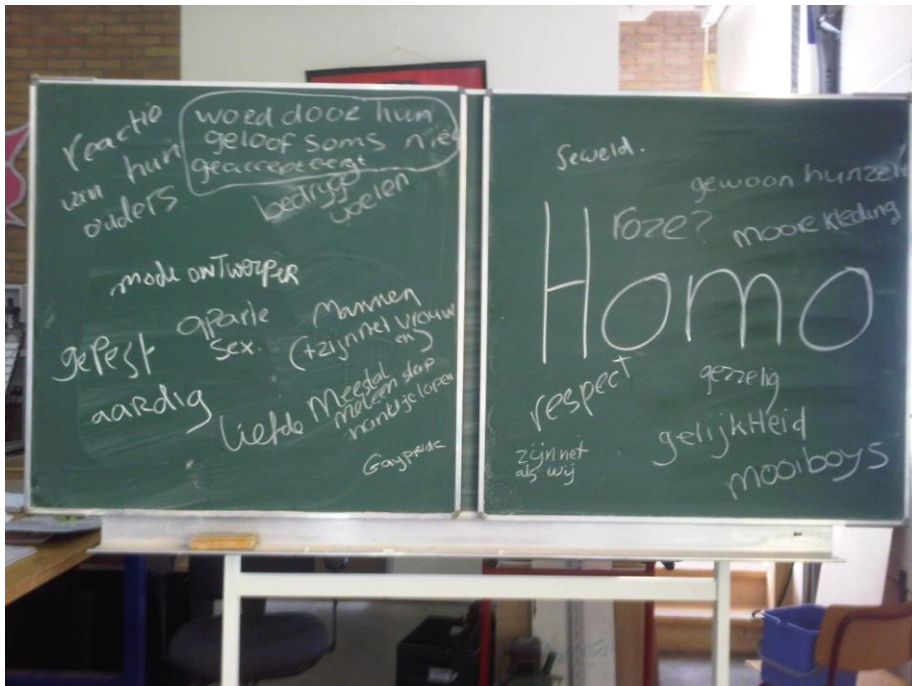 reactie
van hun
ouders
woed dooz hun
geloof soms niet
geaccepteergt
bedrygg
voelen
mode ontwerper
gepest
aparte
sex.
Mannen
(+zijn net vrouw
en)
aardig
liefde
Meestal
met een slap
handje lopen
Gaypride
Geweld.
gewoon hunzelf
roze?
mooie kleding
Homo
respect
gezzelig
zijn net
als wij
gelijkHeid
mooiboys